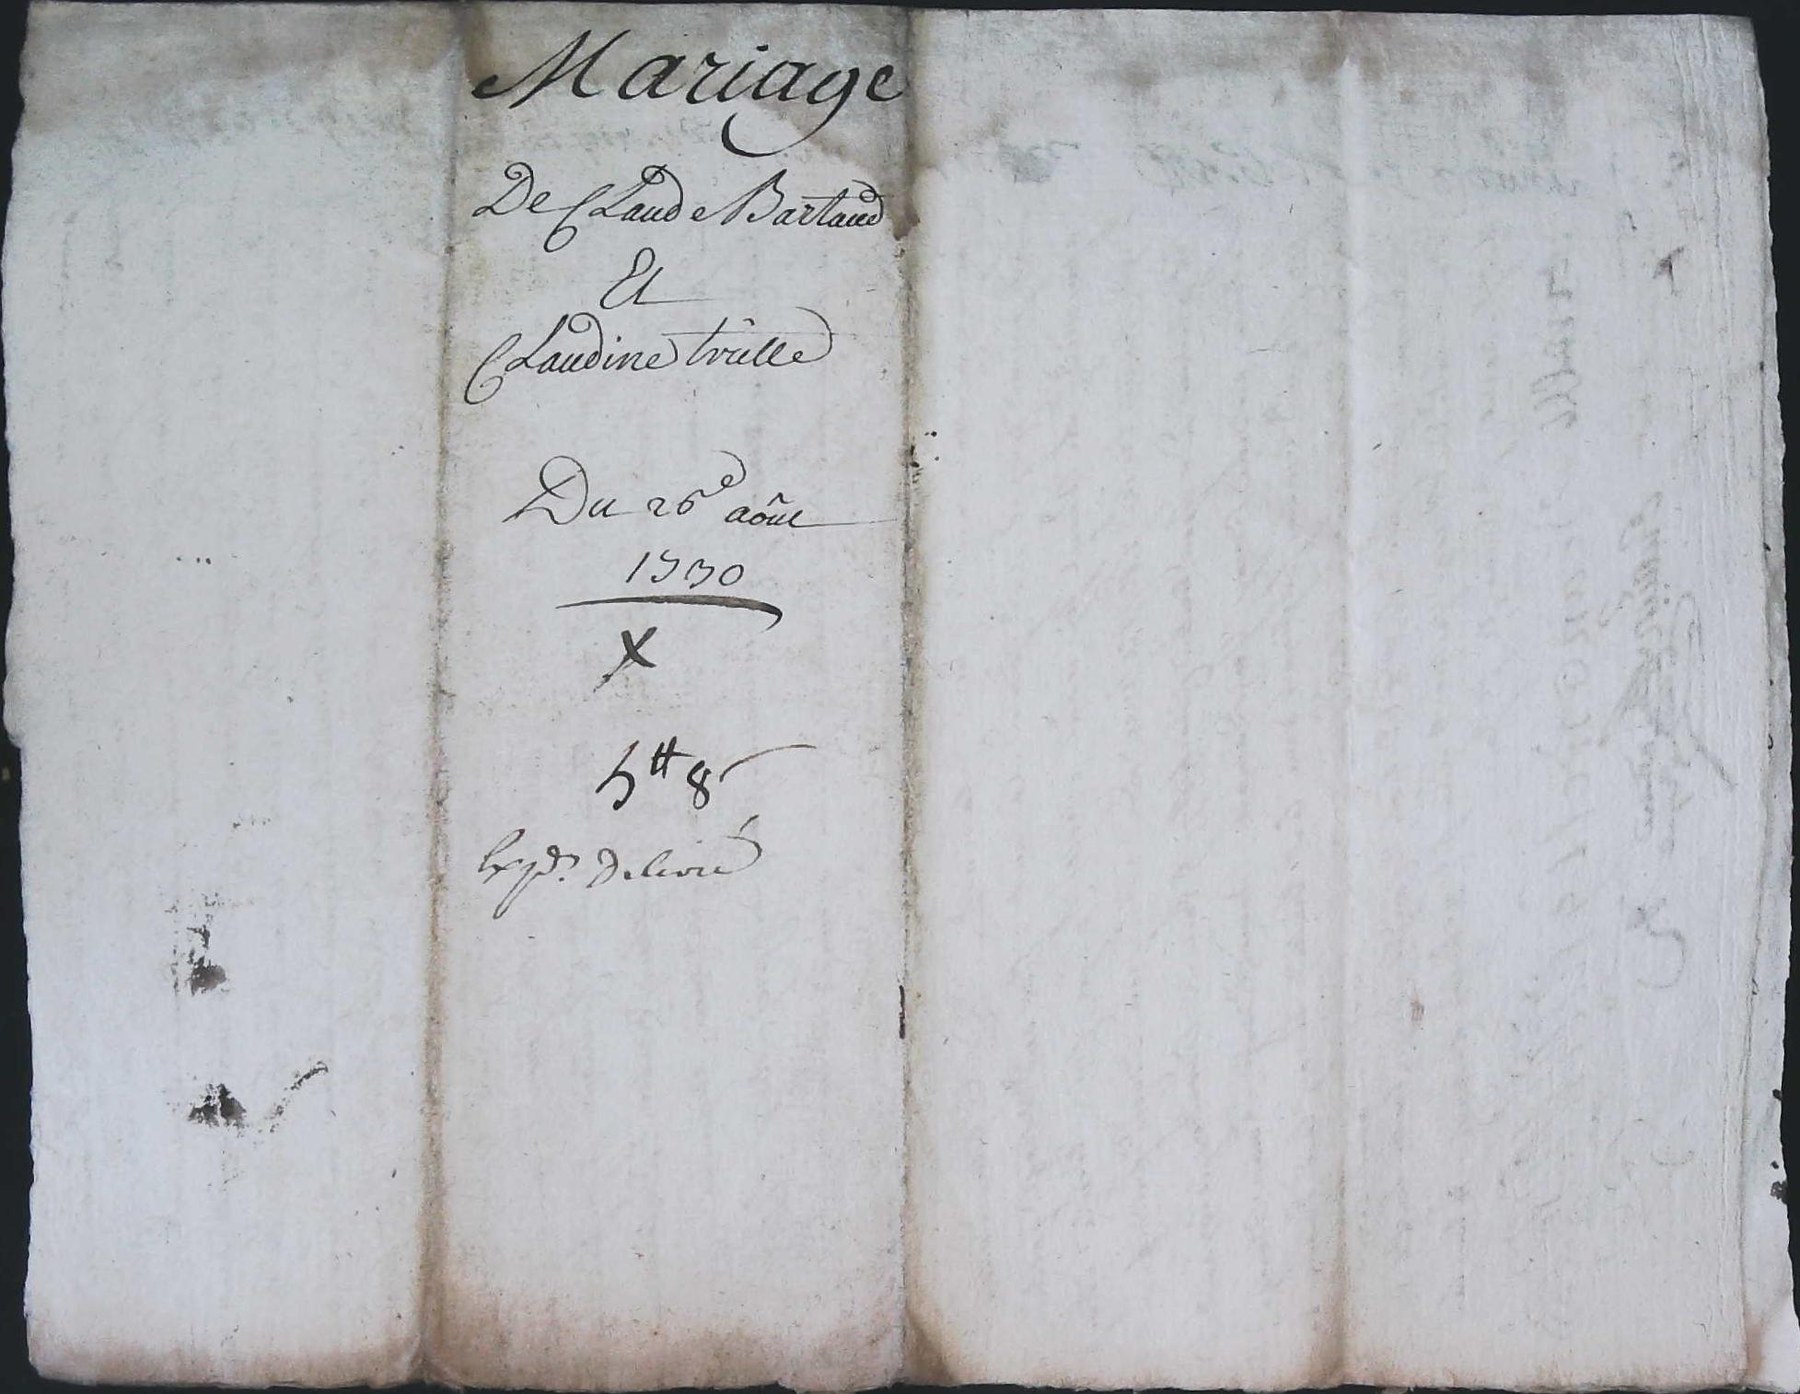 Mariage
De Claude Bartaud
Et
Claudine trûlle
Du 26e aôut
1770
X
5tt 8
Expon Delivré